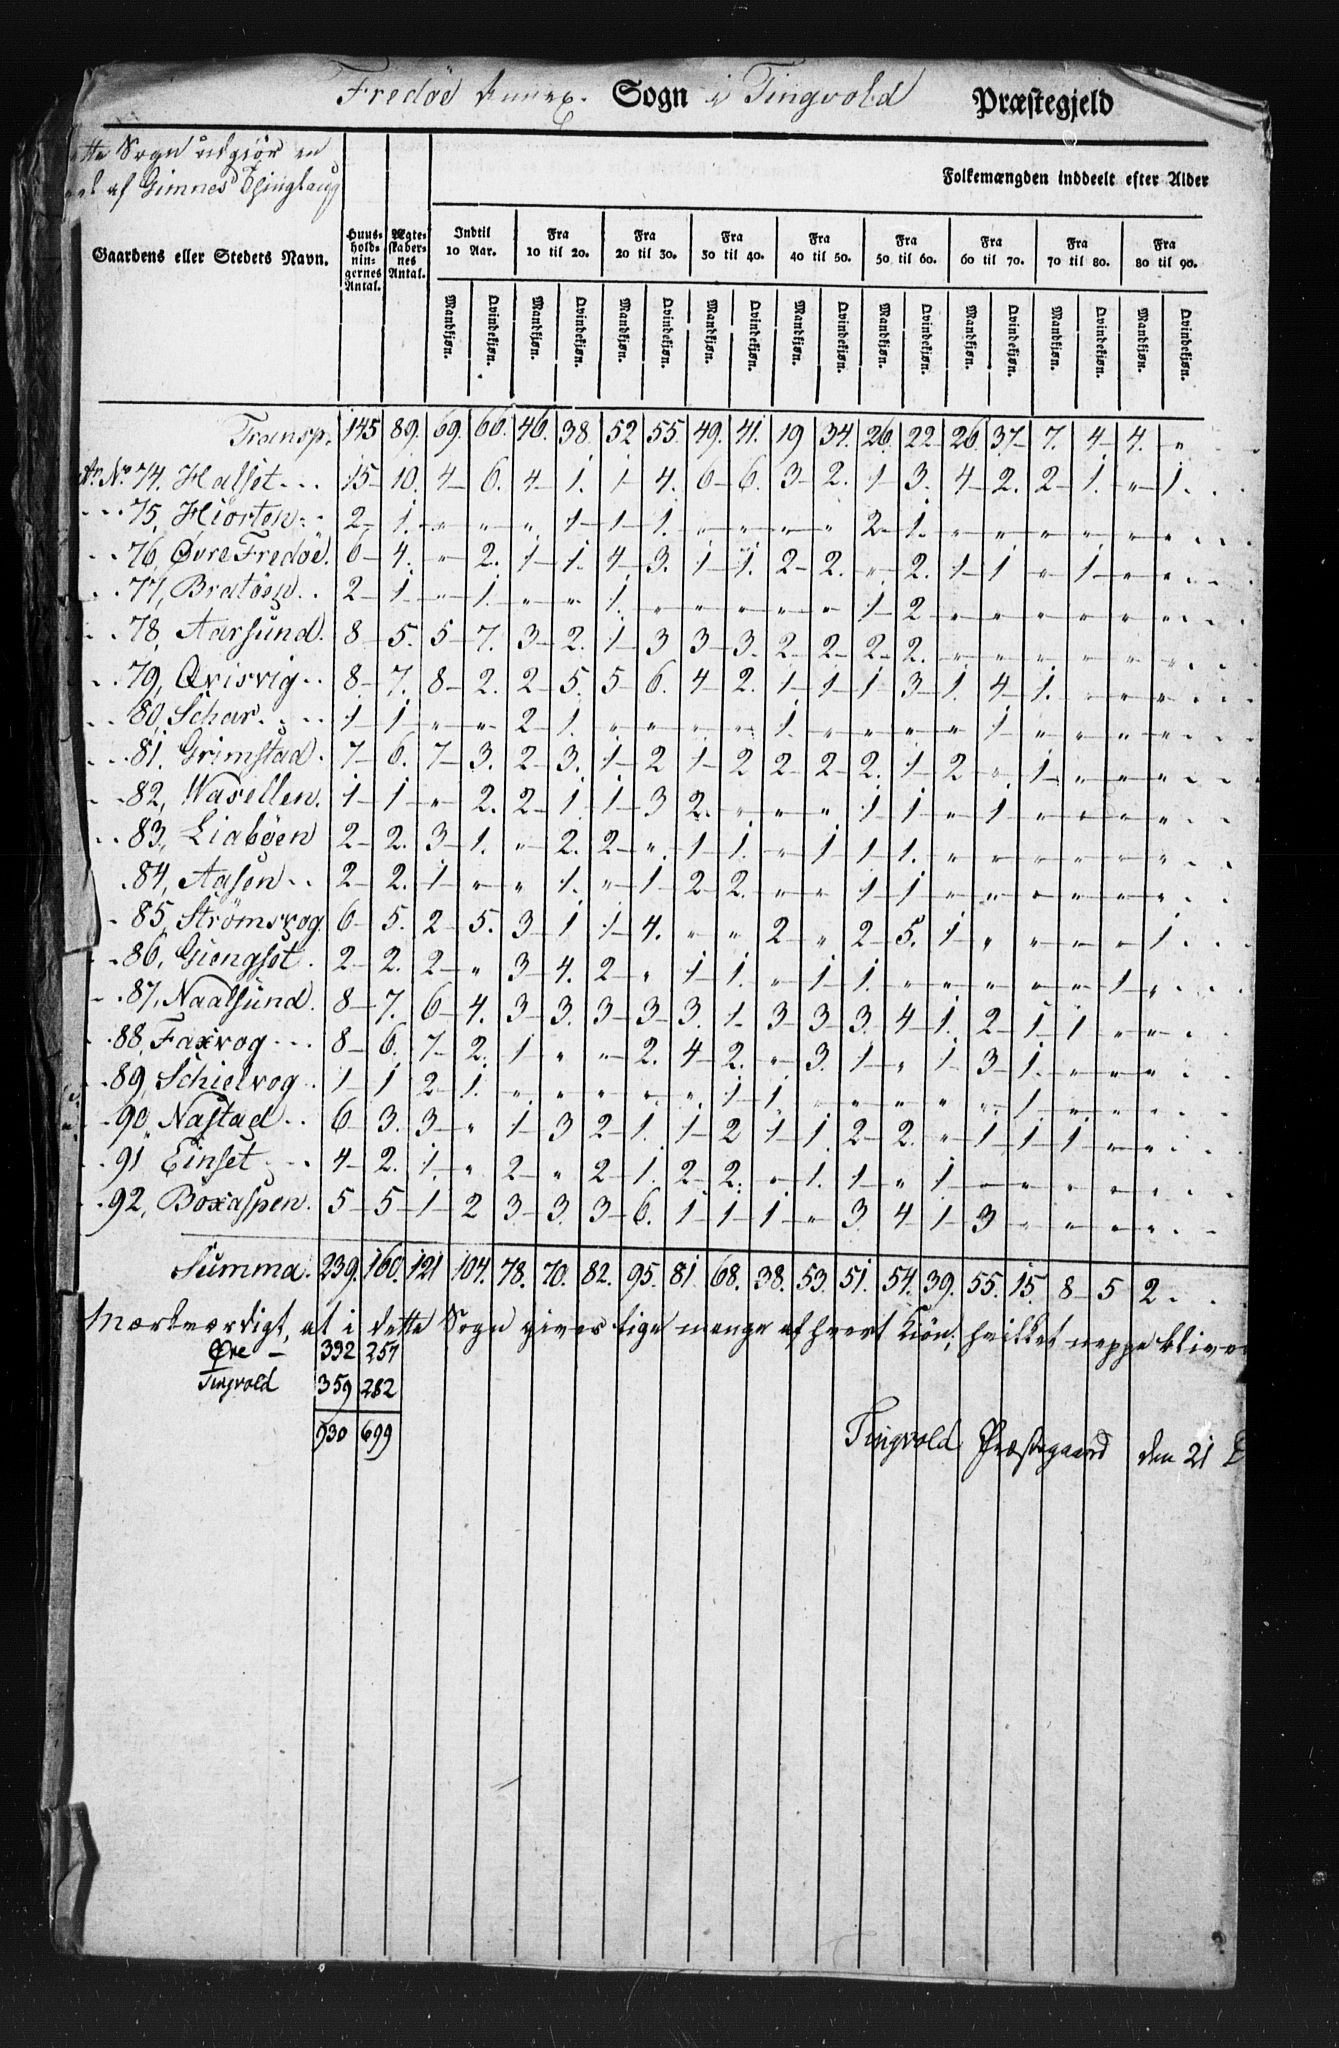 Fredöe Annex. Sogn i Tingvold Præstegjeld
tte Sogn udgiör en
el af Gimnes Thinglaug
Folkemængden inddeelt efter Alder
Gaardens eller Stedets Navn. Huus-holds-nin-gernes Antal. Ægte-skaber-nes Antal. Indtil 10 Aar. Fra 10 til 20. Fra 20 til 30. Fra 30 til 40. Fra 40 til 50. Fra 50 til 60. Fra 60 til 70. Fra 70 til 80. Fra 80 til 90.
Mandkjøn. Qvindekjøn. Mandkjøn. Qvindekjøn. Mandkjøn. Qvindekjøn. Mandkjøn. Qvindekjøn. Mandkjøn. Qvindekjøn. Mandkjøn. Qvindekjøn. Mandkjøn. Qvindekjøn. Mandkjøn. Qvindekjøn. Mandkjøn. Qvindekjøn.
Transp. 145 89. 69. 60. 46. 38. 52 55. 49. 41. 19 34. 26. 22 26. 37 7. 4 4. „
No 74, Halset 15 10. 4 6. 4 1. 1 4. 6 6. 3 2. 1 3. 4 2. 2 1. „ 1.
75, Hiörten 2 1. „ „ „ 1 1 1. „ „ „ „ 2 1. „ „ „ „ „ „
76, Øvre Fredöe. 6 4. „ 2. 1 1. 4 3. 1 1. 2 2. „ 2. 1 1 „ 1 „ „
77, Bratöen 2 1 „ 1. „ „ 1. „ „ „ „ „ 1 2 „ „ „ „ „ „
78, Aarsund. 8 5. 5 7. 3 2. 1 3 3 3. 2 2 2 2. „ „ „ „ „ „
79, Qvisvig 8 7. 8 2. 2 5. 5 6. 4 2. 1 1 1 3 1. 4 1. „ „ „
80, Schar. 1 1 „ „ 2 1. „ „ „ „ 1. „ „ „ „ 1 „ „ „ „
81. Grimstad. 7 6. 7 3. 2 3. 1 2 1 2 2 2 2. 1 2 „ 1 „ „ „
82, Wasellen. 1 1 „ 2. 2 1 1 3 2. „ „ „ 1 1 „ 1 „ „ „ „
83, Liabøen 2 2. 3 1. „ 2. 2 „ 1 1. „ 1 1 1. „ „ „ „ „ „
84, Aasen 2 2. 1 „ „ 1. „ 1 2 2. „ „ 1 1 „ „ „ „ „ „
85, Strömsvog. 6 5. 2 5. 3 1 1 4. „ „ 2 „ 2 5. 1 „ „ „ „ 1
86, Giengset. 2 2. 2 „ 3 4. 2 „ 1 1. „ 1 1. „ „ „ „ „ 1 „
87, Naalsund. 8 7. 6 4. 3 3. 3 3 3. 1 3 3 3. 4 1. 2 1 1 „ „
88, Faxvog 8 6. 7 2. 1 „ „ 2. 4 2. „ 3. 1 „ 1 3 1. „ „ „
89, Schielvog 1 1 2 1. „ „ „ „ „ 1 1 „ „ „ „ „ 1 „ „ „
90, Nastad 6 3. 3 „ 1 3 2 1. 1 2 1 1. 2 2. „ 1 1 1 „ „
91 Einset 4 2. 1. „ 2 „ 2 1. 2 2. „ 1. 1 „ 1 „ „ „ „ „
92, Boxaspen. 5 5 1 2 3 3. 3 6. 1 1 1 „ 3. 4 1 3 „ „ „ „
Summa. 239. 160. 121 104. 78. 70. 82. 95. 81. 68. 38. 53. 51. 54. 39. 55. 15. 8 5 2.
Mærkværdigt, at i dette Sogn gives lige mange af hvert Kiön; hvilket neppe bliver
Øre 332 257
Tingvold 359 282
930 699
Tingvold Præstegaard den 21 D